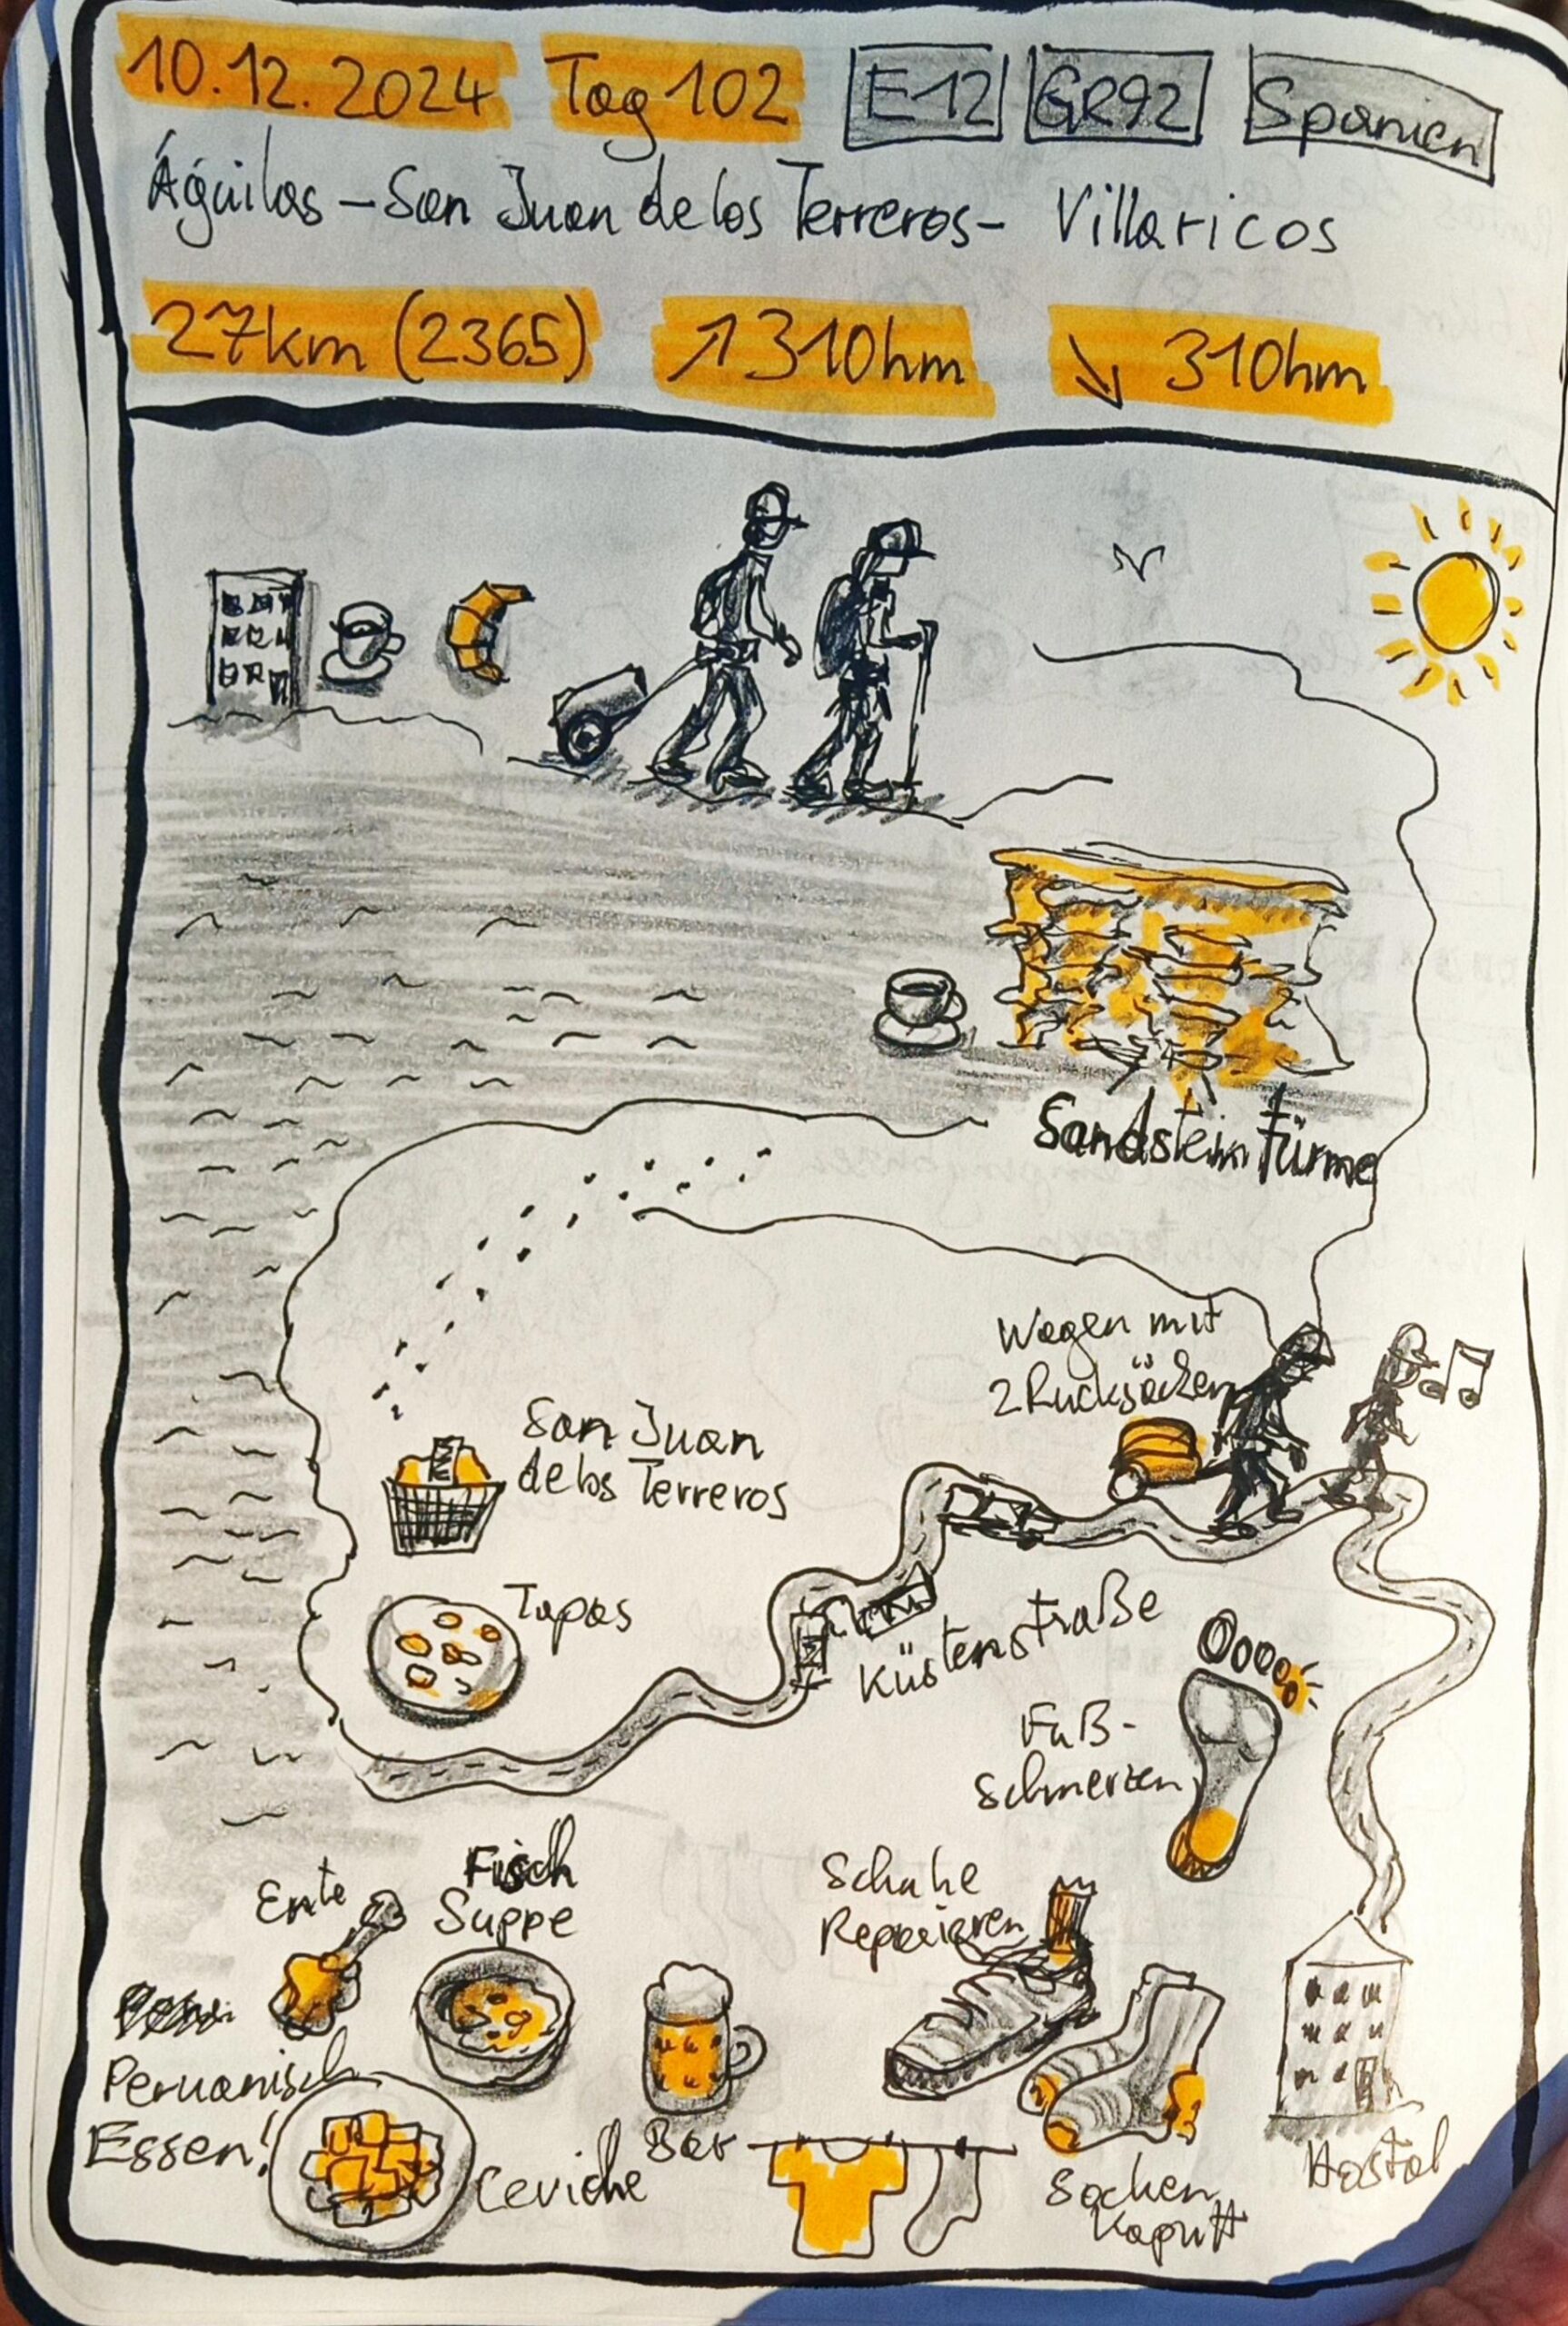 10.12.2024 Tag 102 E12 GR92 Spanien
Águilas – San Juan de los Terreros – Villaricos
27km (2365) ↗310hm ↘ 310hm
Sandstein türme
Wagen mit
2 Rucksäcken
San Juan
de los Terreros
Tapas
Küstenstraße
Fuß-
schmerzen
Ente
Fisch
Suppe
Schuhe
Reparieren
Peruanisch
Essen!
Ceviche
Bar
Socken
Kaputt
Hostal